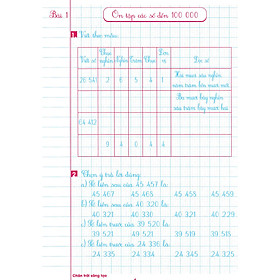 Bài 1 Ôn tập các số đến 100 000
1 Viết theo mẫu:
Viết số Chục nghìn Nghìn Trăm Chục Đơn vị Đọc số
26 541 2 6 5 4 1 Hai mươi sáu nghìn năm trăm bốn mươi mốt
Ba mươi bảy nghìn
64 412
0 0
2 Chọn ý trả lời đúng:
a) Số liền sau của 45 457 là:
45 467 45 465 45 458 45 459
b) Số liền sau của 40 320 là:
40 321 40 330 40 421 40 229
c) Số liền trước của 39 520 là:
39 519 39 521 39 515 39 519
e) Số liền trước của 24 336 là:
24 335 24 334 24 345 24 325
Chân trời sáng tạo